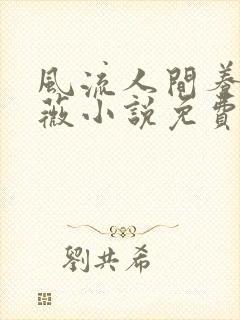 風流人間養
薇小說免費
劉共希